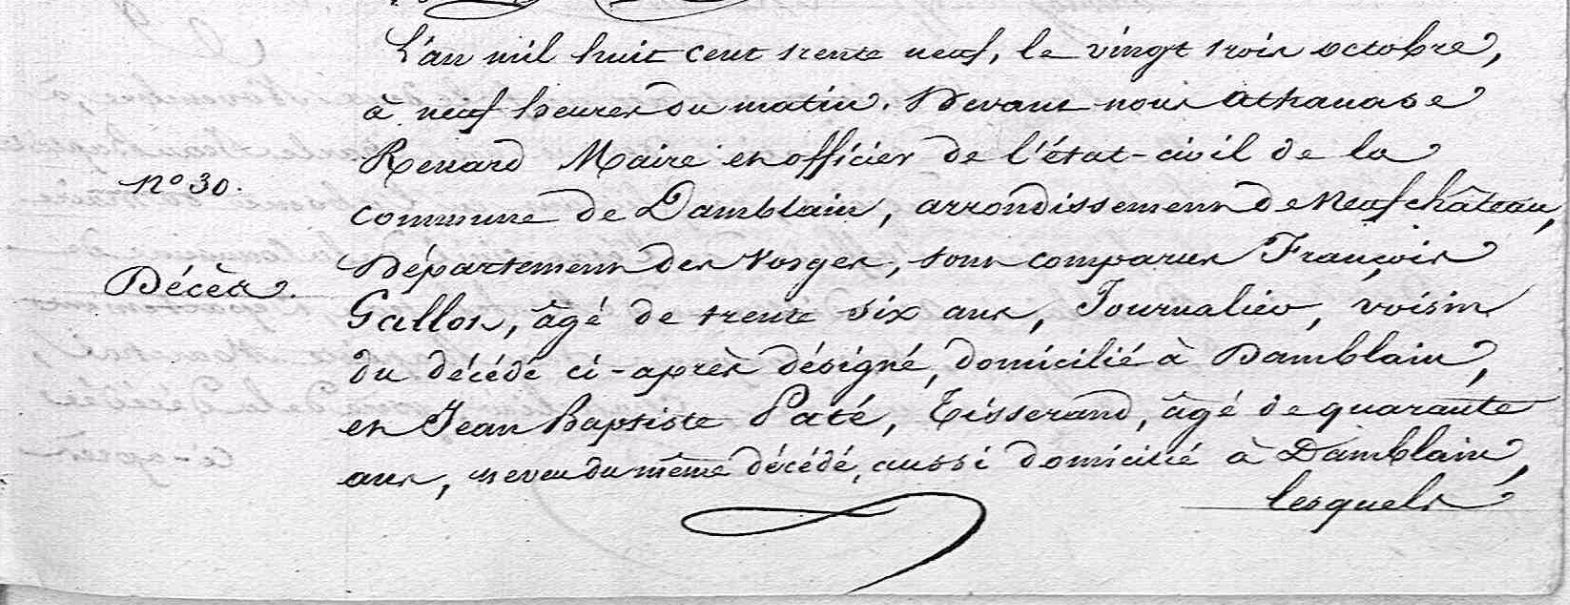 L'an mil huit cent trente neuf, le vingt trois octobre,
à neuf heures du matin. Devant nous Athanase
Renard Maire et officier de l'état-civil de la
n° 30.
commune de Damblain, arrondissement de Neufchâteau,
Département des Vosges, sont comparus François
Décès.
Gallot, âgé de trente six ans, Journalier, voisin
du décédé ci-après désigné, domicilié à Damblain,
et Jean Baptiste Paté, Tisserand, âgé de quarante
ans, neveu du même décédé, aussi domicilié à Damblain,
lesquels